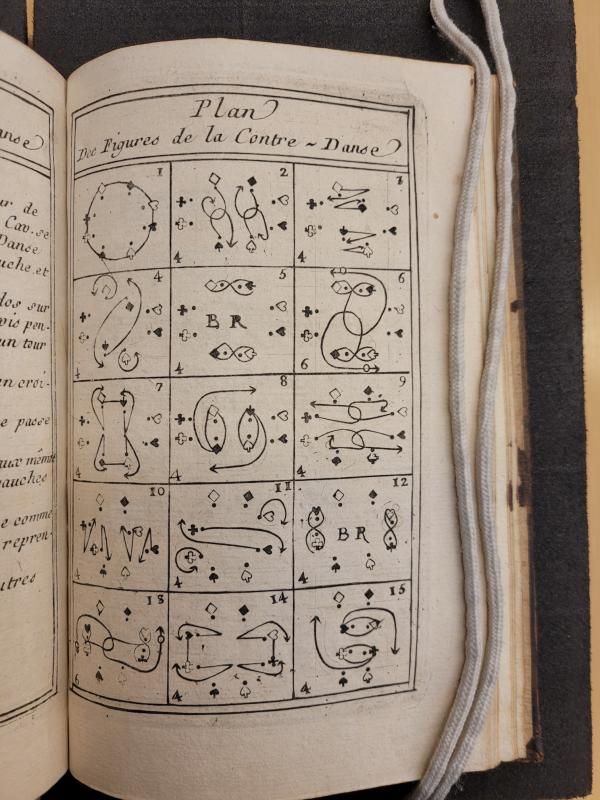 anse
ur de
Cav. se
Danse
uche, et
dos sur
vis pen-
un tour
n croi-
e passe
aux même
gauches
e comme
repren-
utres
Plan
Des Figures de la Contre ~ Danse
1 2 3
4 4
4 5 6
B R
4 4 6
7 8 9
4 4 4
10 11 12
B R
4 4 4
13 14 15
6 4 4